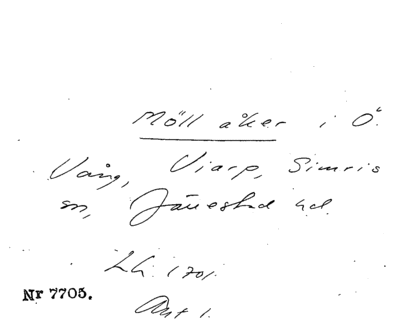 Möll åker i Ö.
Vång, Viarp, Simris
sn, Järrestad hd.
LG. 1701.
Nr 7705.
Akt 1.